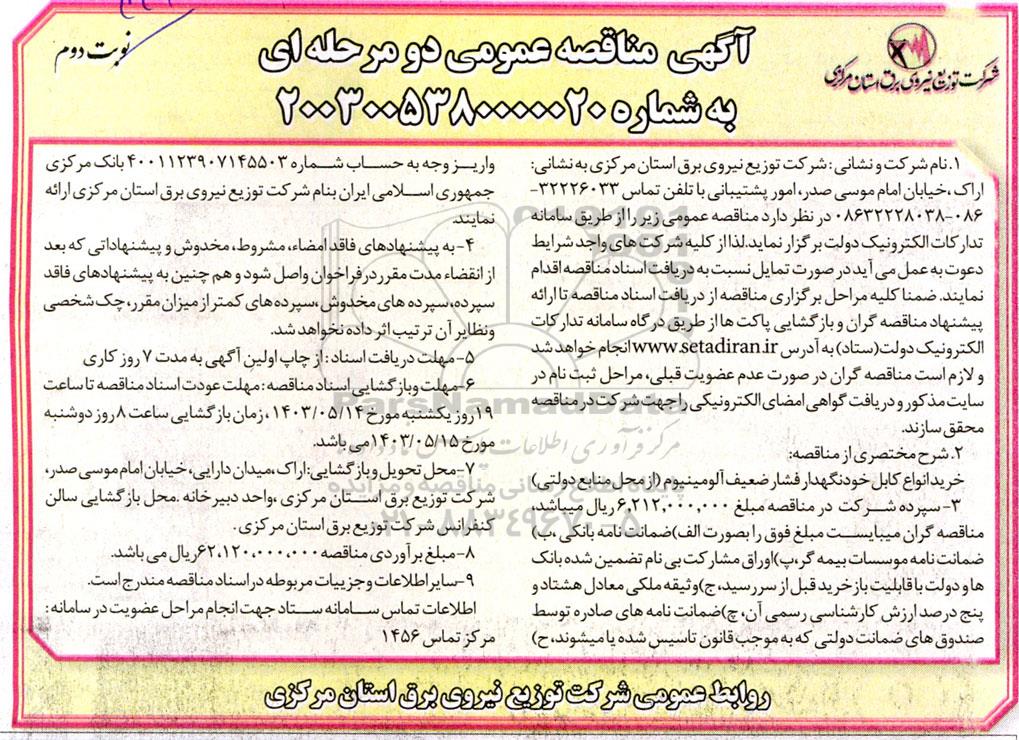 نوبت دوم
شرکت توزیع نیروی برق استان مرکزی
آگهی مناقصه عمومی دو مرحله ای
به شماره ۲۰۰۳۰۰۵۳۸۰۰۰۰۰۲۰
۱. نام شرکت و نشانی : شرکت توزیع نیروی برق استان مرکزی به نشانی:
اراک ،خیابان امام موسی صدر، امور پشتیبانی با تلفن تماس ۳۲۲۲۶۰۳۳-
۰۸۶-۰۸۶۳۲۲۲۸۰۳۸ در نظر دارد مناقصه عمومی زیر را از طریق سامانه
تدارکات الکترونیک دولت برگزار نماید.لذا از کلیه شرکت های واجد شرایط
دعوت به عمل می آید در صورت تمایل نسبت به دریافت اسناد مناقصه اقدام
نمایند. ضمنا کلیه مراحل برگزاری مناقصه از دریافت اسناد مناقصه تا ارائه
پیشنهاد مناقصه گران و بازگشایی پاکت ها از طریق درگاه سامانه تدارکات
الکترونیک دولت(ستاد) به آدرس www.setadiran.ir انجام خواهد شد
و لازم است مناقصه گران در صورت عدم عضویت قبلی، مراحل ثبت نام در
سایت مذکور و دریافت گواهی امضای الکترونیکی را جهت شرکت در مناقصه
محقق سازند.
۲. شرح مختصری از مناقصه:
خرید انواع کابل خودنگهدار فشار ضعیف آلومینیوم (از محل منابع دولتی)
۳- سپرده شرکت در مناقصه مبلغ ۶,۲۱۲,۰۰۰,۰۰۰ ریال میباشد،
مناقصه گران میبایست مبلغ فوق را بصورت الف)ضمانت نامه بانکی ،ب)
ضمانت نامه موسسات بیمه گر،پ)اوراق مشارکت بی نام تضمین شده بانک
ها و دولت با قابلیت بازخرید قبل از سررسید، ج)وثیقه ملکی معادل هشتاد و
پنج درصد ارزش کارشناسی رسمی آن، چ)ضمانت نامه های صادره توسط
صندوق های ضمانت دولتی که به موجب قانون تاسیس شده یا میشوند، ح)
واریز وجه به حساب شماره ۴۰۰۱۱۲۳۹۰۷۱۴۵۵۰۳ بانک مرکزی
جمهوری اسلامی ایران بنام شرکت توزیع نیروی برق استان مرکزی ارائه
نمایند.
۴- به پیشنهادهای فاقد امضاء، مشروط، مخدوش و پیشنهاداتی که بعد
از انقضاء مدت مقرر در فراخوان واصل شود و هم چنین به پیشنهادهای فاقد
سپرده، سپرده های مخدوش ،سپرده های کمتر از میزان مقرر، چک شخصی
ونظایر آن ترتیب اثر داده نخواهد شد.
۵- مهلت دریافت اسناد : از چاپ اولین آگهی به مدت ۷ روز کاری
۶-مهلت وبازگشایی اسناد مناقصه : مهلت عودت اسناد مناقصه تا ساعت
۱۹ روز یکشنبه مورخ ۱۴۰۳/۰۵/۱۴، زمان بازگشایی ساعت ۸ روز دوشنبه
مورخ ۱۴۰۳/۰۵/۱۵ می باشد.
۷-محل تحویل و بازگشایی:اراک،میدان دارایی،خیابان امام موسی صدر،
شرکت توزیع برق استان مرکزی ،واحد دبیرخانه .محل بازگشایی سالن
کنفرانس شرکت توزیع برق استان مرکزی.
۸-مبلغ برآوردی مناقصه ۶۲,۱۲۰,۰۰۰,۰۰۰ ریال می باشد.
۹-سایر اطلاعات و جزییات مربوطه در اسناد مناقصه مندرج است.
اطلاعات تماس سامانه ستاد جهت انجام مراحل عضویت در سامانه :
مرکز تماس ۱۴۵۶
روابط عمومی شرکت توزیع نیروی برق استان مرکزی
ParsNamadData
۰۲۱-۸۸۳۴۹۶۷۰-۵